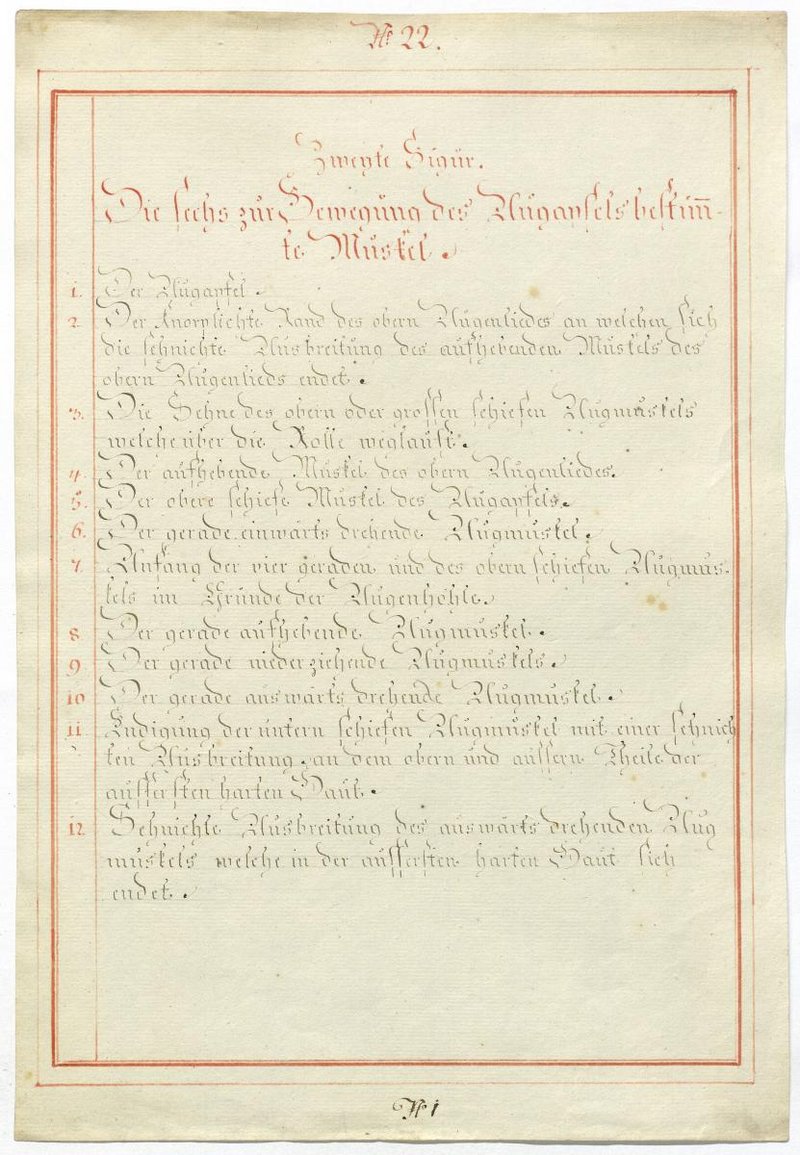 N° 22.
Zweyte Figur.
Die sechs zur Bewegung des Augapfels bestim̅-
te Muskel.
1. Der Augapfel.
2. Der Knorplichte Rand des obern Augenliedes an welchen sich
die sehnichte Ausbreitung des aufhebenden Muskels des
obern Augenlieds endet.
3. Die Sehne des obern oder grossen schiefen Augmuskels
welche über die Rolle weglauft.
4. Der aufhebende Muskel des obern Augenliedes.
5. Der obere schiefe Muskel des Augapfels.
6. Der gerade einwärts drehende Augmuskel.
7. Anfang der vier geraden und des obern schiefen Augmus-
kels im Grunde der Augenhöhle.
8. Der gerade aufhebende Augmuskel.
9. Der gerade niederziehende Augmuskels.
10. Der gerade auswärts drehende Augmuskel.
11. Endigung der untern schiefen Augmuskel mit einer sehnich
ten Ausbreitung an dem obern und äussern Theile der
äussersten harten Haut.
12. Sehnichte Ausbreitung des auswärts drehenden Aug
muskels welche in der äussersten harten Haut sich
endet.
N° 1